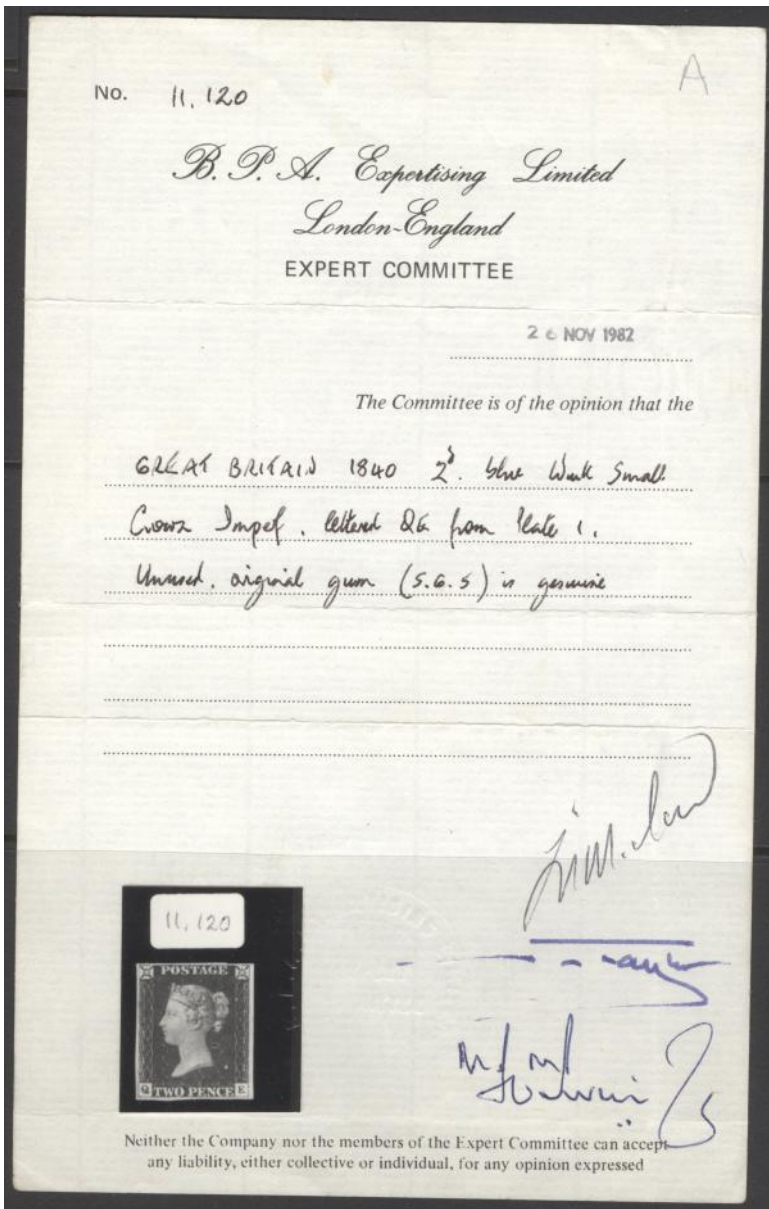 A
No. 11,120
B. P. A. Expertising Limited
London-England
EXPERT COMMITTEE
26 NOV 1982
The Committee is of the opinion that the
GREAT BRITAIN 1840 2d. blue Wmk Small
Crown Imperf. lettered QE from Plate 1.
Unused, original gum (S.G.5) is genuine
11,120
POSTAGE
Q TWO PENCE E
Neither the Company nor the members of the Expert Committee can accept
any liability, either collective or individual, for any opinion expressed